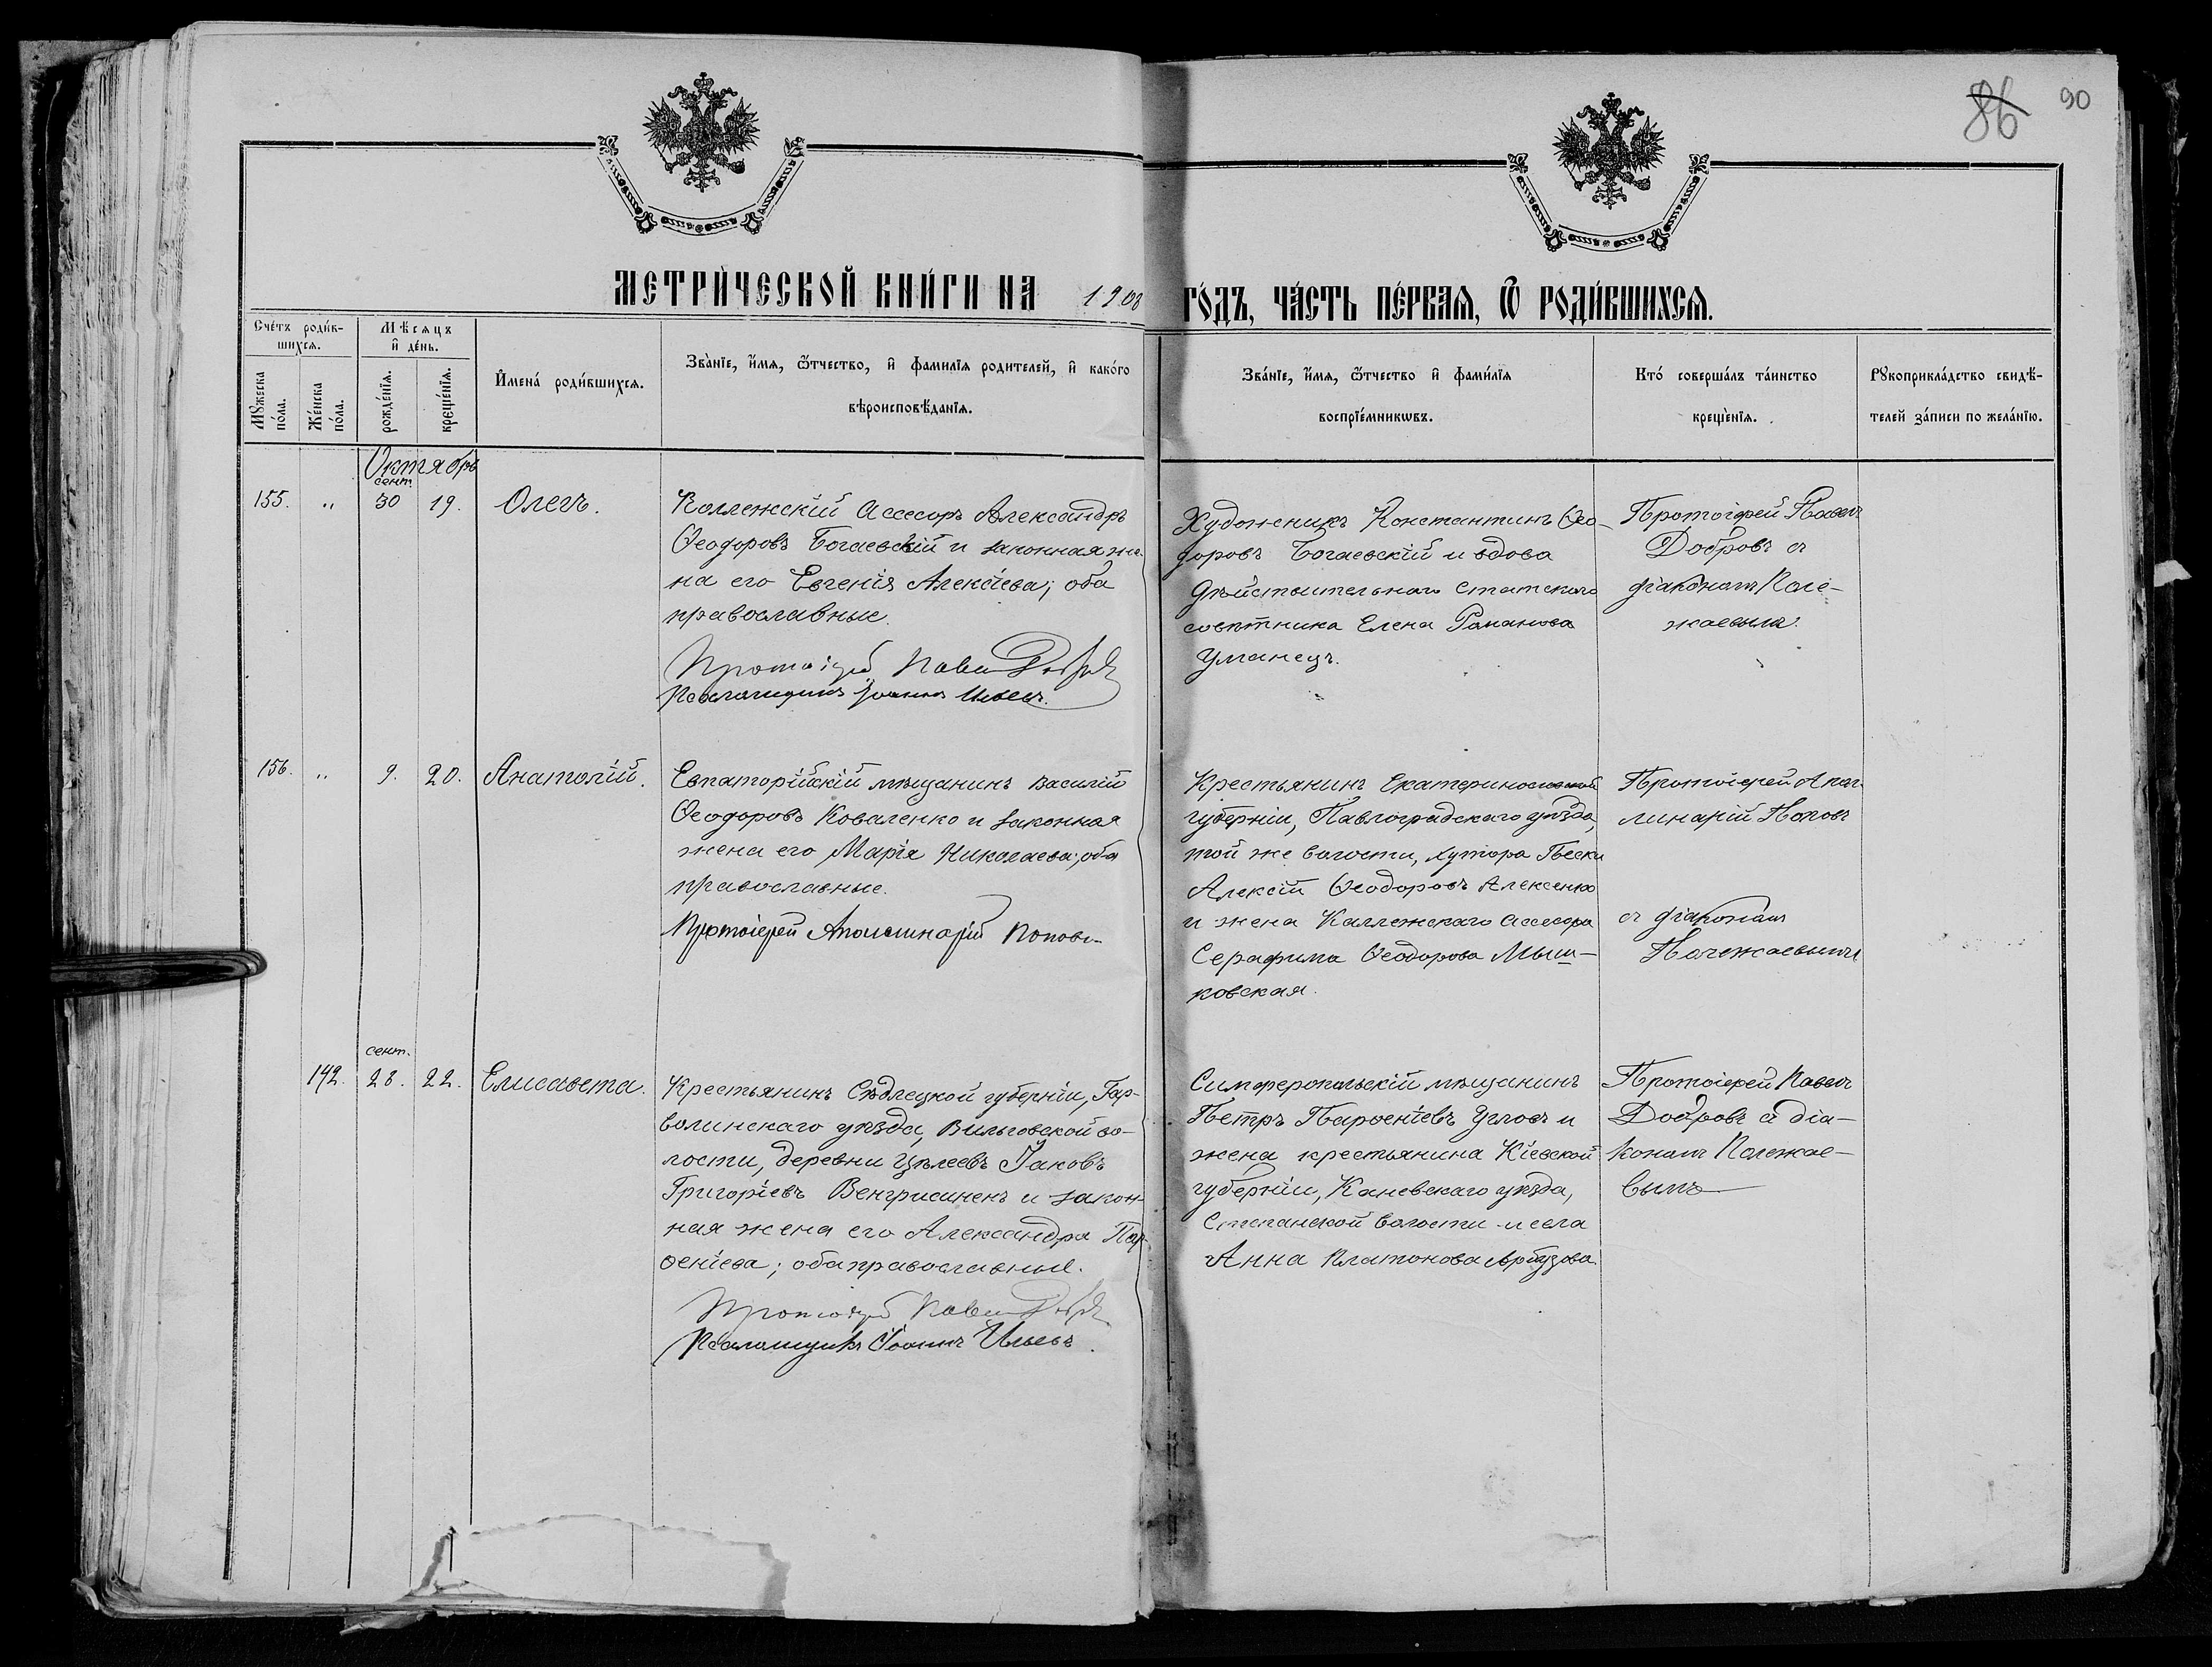 86 90
МЕТРИ́ЧЕСКОЙ КНИ́ГИ НА 1908 ГО́ДЪ, ЧА́СТЬ ПЕ́РВАЯ, Ѿ РОДИ́ВШИХСЯ.
Сче́тъ роди́в-
шихся.
Мѣсяцъ
и де́нь.
Мꙋжеска
по́ла.
Же́нска
по́ла.
рожде́нїя.
креще́нїя.
Имена́ роди́вшихся.
Зва́нїе, и́мя, ѻ́тчество, и фами́лїя родителей, и како́го
вѣроисповѣ́данїя.
Зва́нїе, и́мя, ѻ́тчество и фами́лїя
воспрїе́мникѡвъ.
Кто́ соверша́лъ та́инство
креще́нїя.
Рꙋкоприкла́дство свидѣ́-
телей за́писи по жела́нїю.
Октябрь
сент.
155. „ 30 19. Олегъ.
Коллежскій Ассесоръ Александръ
Ѳеодоровъ Богаевскій и законная же-
на его Евгенія Алексіева; оба
православные.
Протоіерей Павелъ Добровъ
Псаломщикъ Іоаннъ Ильевъ.
Художникъ Константинъ Ѳео-
доровъ Богаевскій и вдова
дѣйствительнаго статскаго
совѣтника Елена Романова
Уманецъ.
Протоіерей Павелъ
Добровъ съ
діакономъ Поле-
жаевымъ.
156. „ 9. 20. Анатолій.
Евпаторійскій мѣщанинъ Василій
Ѳеодоровъ Коваленко и законная
жена его Марія Николаева; оба
православные.
Протоіерей Аполлинарій Поповъ
Крестьянинъ Екатеринославской
губерніи, Павлоградскаго уѣзда,
той же волости, хутора Пески
Алексій Ѳеодоровъ Алексенко
и жена Коллежскаго Ассесора
Серафима Ѳеодорова Мыш-
ковская.
Протоіерей Апол-
линарій Поповъ
съ діакономъ
Полежаевымъ
сент.
142. 28. 22. Елисавета.
Крестьянинъ Сѣдлецкой губерніи, Гар-
волинскаго уѣзда, Вильговской во-
лости, деревни Цѣлеевъ Іаковъ
Григоріевъ Венгрисинекъ и закон-
ная жена его Александра Пар-
ѳеніева; оба православные.
Протоіерей Павелъ Добровъ
Псаломщикъ Іоаннъ Ильевъ.
Симферопольскій мѣщанинъ
Петръ Парѳеніевъ Угловъ и
жена крестьянина Кіевской
губерніи, Каневскаго уѣзда,
Степанской волости и села
Анна Платонова Арбузова.
Протоіерей Павелъ
Добровъ съ діа-
кономъ Полежае-
вымъ